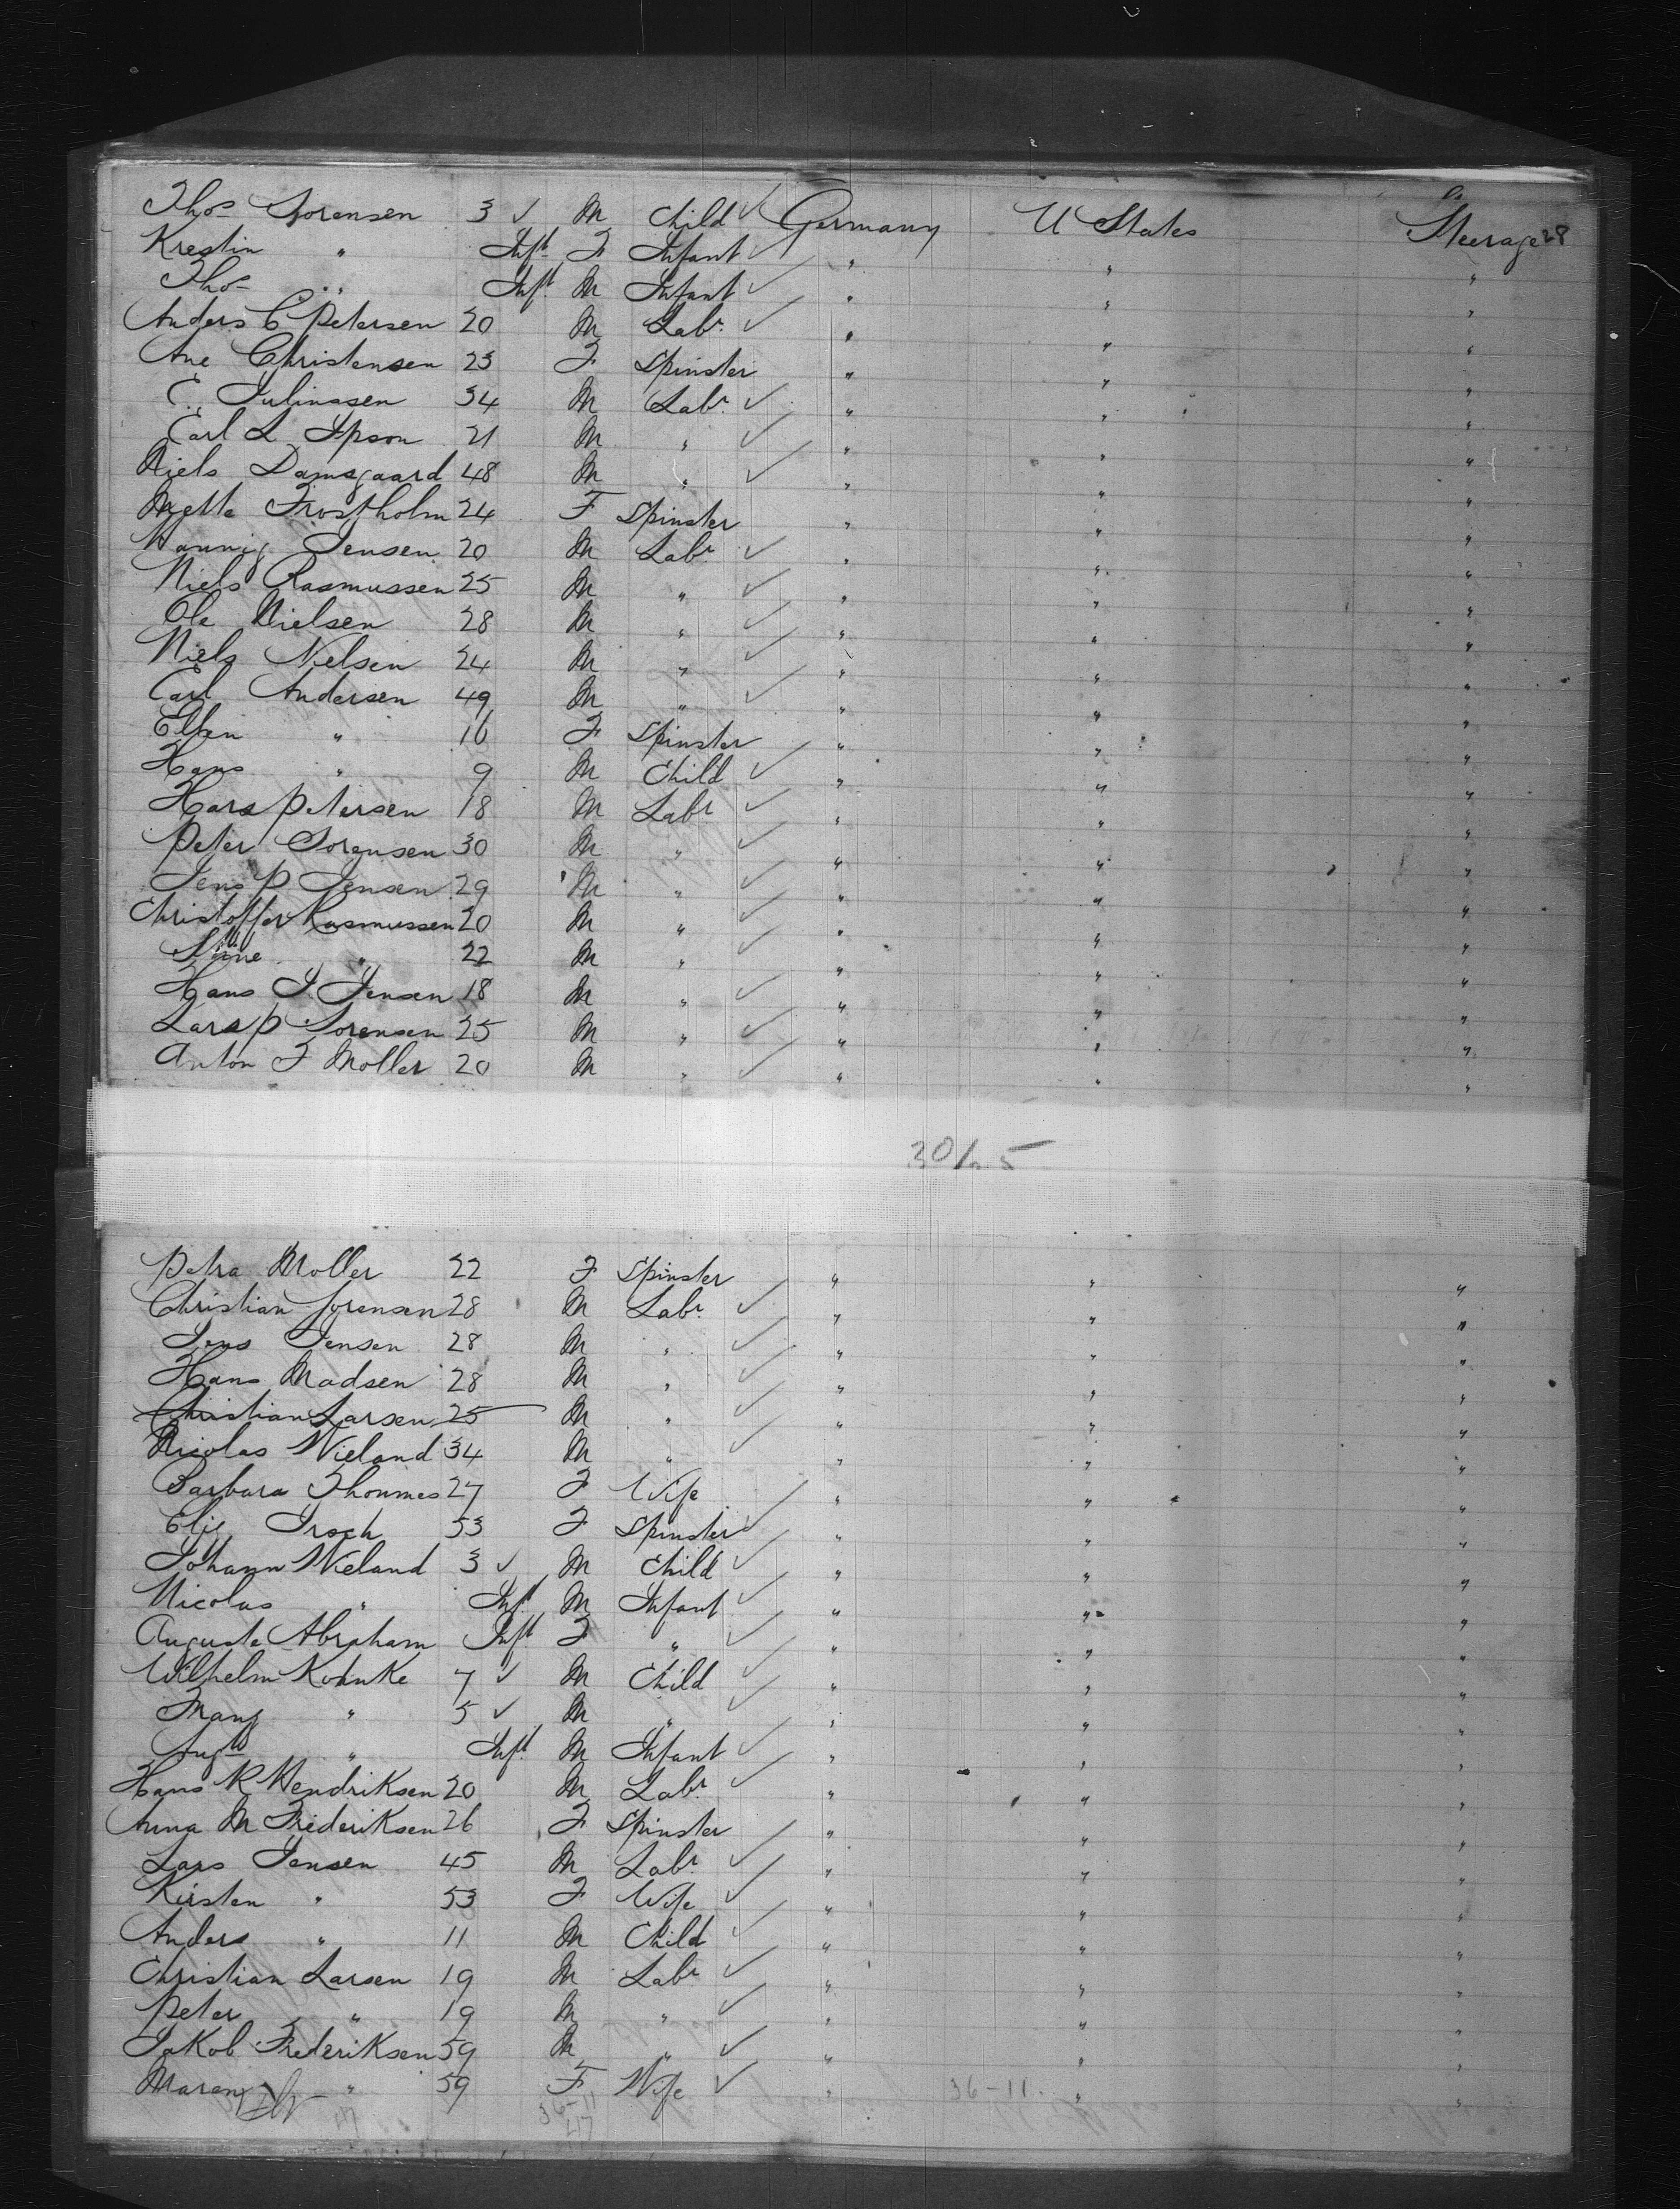 Thos Sorensen 3 ✓ M Child ✓ Germany U States Steerage 28
Krestin " Inft F Infant ✓ " " "
Thos " Inft M Infant ✓ " " "
Anders C Petersen 20 M Labr ✓ " " "
Ane Christensen 23 F Spinster " " "
C. Julinasen 34 M Labr ✓ " " "
Carl L Ipson 21 M " ✓ " " "
Niels Damsgaard 48 M " ✓ " " "
Mette Frostholm 24 F Spinster " " "
Hannig Jensen 20 M Labr ✓ " " "
Niels Rasmussen 25 M " ✓ " " "
Ole Nielsen 28 M " ✓ " " "
Niels Nielsen 24 M " ✓ " " "
Carl Andersen 49 M " ✓ " " "
Ellen " 16 F Spinster " " "
Hans " 9 M Child ✓ " " "
Hans Petersen 18 M Labr ✓ " " "
Peter Sorensen 30 M " ✓ " " "
Jens P Jensen 29 M " ✓ " " "
Christoffer Rasmussen 20 M " ✓ " " "
" 22 M " ✓ " " "
Hans J Jensen 18 M " ✓ " " "
Lars P Sorensen 25 M " ✓ " " "
Anton F Moller 20 M " ✓ " " "
Petra Moller 22 F Spinster " " "
Christian Sorensen 28 M Labr ✓ " " "
Jens Jensen 28 M " ✓ " " "
Hans Madsen 28 M " ✓ " " "
Christian Larsen 25 M " ✓ " " "
Nicolas Wieland 34 M " ✓ " " "
Barbara Thommes 27 F Wife " " "
Elis Irsch 53 F Spinster ✓ " " "
Johann Wieland 3 ✓ M Child ✓ " " "
Nicolas " Inft M Infant ✓ " " "
Auguste Abraham Inft F " ✓ " " "
Wilhelm Kohnke 7 ✓ M Child ✓ " " "
Franz " 5 ✓ M " ✓ " " "
Augt " Inft M Infant ✓ " " "
Hans R Hendriksen 20 M Labr ✓ " " "
Anna M Frederiksen 26 F Spinster " " "
Lars Jensen 45 M Labr ✓ " " "
Kirsten " 53 F Wife ✓ " " "
Anders " 11 M Child ✓ " " "
Christian Larsen 19 M Labr ✓ " " "
Peter " 19 M " ✓ " " "
Jakob Frederiksen 59 M " ✓ " " "
Maren " 59 F Wife ✓ " 36-11. " "
36-11
47